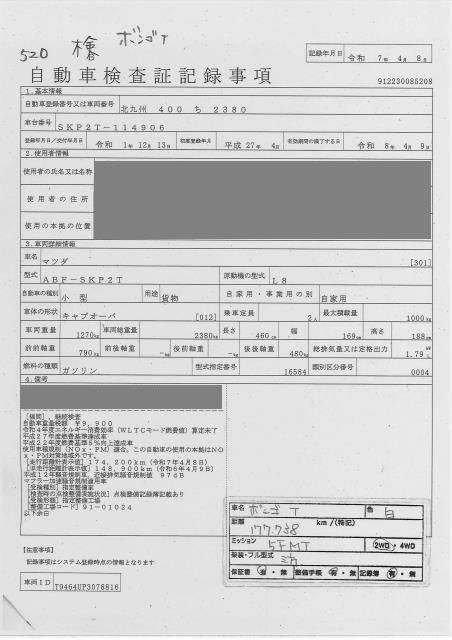 520 檜 ボンゴT
記録年月日 令和 7年 4月 8日
自動車検査証記録事項
912230085208
1.基本情報
自動車登録番号又は車両番号 北九州 400 ち 2380
車台番号 SKP2T-114906
登録年月日/交付年月日 令和 1年 12月 13日 初度登録年月 平成 27年 4月 有効期間の満了する日 令和 8年 4月 9日
2.使用者情報
使用者の氏名又は名称
使用者の住所
使用の本拠の位置
3.車両詳細情報
車名 マツダ [301]
型式 ABF-SKP2T 原動機の型式 L8
自動車の種別 小型 用途 貨物 自家用・事業用の別 自家用
車体の形状 キャブオーバ [012] 乗車定員 2人 最大積載量 1000kg
車両重量 1270kg 車両総重量 2380kg 長さ 460cm 幅 169cm 高さ 188cm
前前軸重 790kg 前後軸重 -kg 後前軸重 -kg 後後軸重 480kg 総排気量又は定格出力 1.79
燃料の種類 ガソリン 型式指定番号 16584 類別区分番号 0004
4.備考
[福岡]、継続検査
自動車重量税額 ¥9,900
令和4年度エネルギー消費効率(WLTCモード燃費値)算定未了
平成27年度燃費基準達成車
平成22年度燃費基準5%向上達成車
使用車種規制(NOx・PM)適合、この自動車の使用の本拠はNO
x・PM対策地域外です。
[走行距離計表示値]174,200km(令和7年4月8日)
[旧走行距離計表示値]148,900km(令和6年4月9日)
平成12年騒音規制車、近接排気騒音規制値 97dB
マフラー加速騒音規制適用車
[受検種別]指定整備車
[検査時の点検整備実施状況]点検整備記録簿記載あり
[受検形態]指定整備工場
[整備工場コード]91-01024
以下余白
車名 ボンゴ T 色 白
距離 177738 km/(特記)
ミッション 5FMT 2WD・4WD
架装・フル型式
保証書 有・無 整備手帳 有・無 記録簿 有・無
【注意事項】
記録事項はシステム登録時点の情報となります
車両ID T9464UP3078816